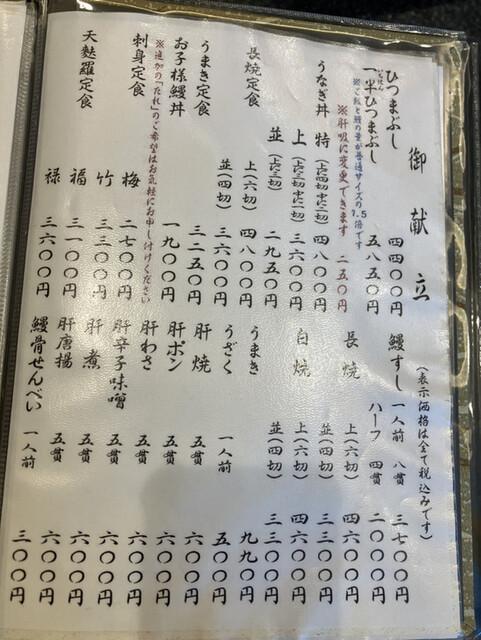 御献立
(表示価格は全て税込みです)
ひつまぶし 四四〇〇円
一半ひつまぶし 五八五〇円
いちはん
※ご飯と鰻の量が普通サイズの1.5倍です
※肝吸に変更できます 二五〇円
うなぎ丼 特(上に四切中に二切) 四八〇〇円
上(上に三切中に一切) 三六〇〇円
並(上に三切) 二九五〇円
長焼定食 上(六切) 四八〇〇円
並(四切) 三六〇〇円
うまき定食 三二五〇円
お子様鰻丼 一九〇〇円
※追加の「たれ」のご希望はお気軽にお申し付けください
刺身定食 梅 二七〇〇円
竹 三三〇〇円
天麩羅定食 福 三一〇〇円
禄 三六〇〇円
鰻すし 一人前 八貫 三七〇〇円
ハーフ 四貫 二〇〇〇円
長焼 上(六切) 四六〇〇円
並(四切) 三三〇〇円
白焼 上(六切) 四六〇〇円
並(四切) 三三〇〇円
うまき 九九〇円
うざく 一人前 五〇〇円
肝焼 五貫 六〇〇円
肝ポン 五貫 六〇〇円
肝わさ 五貫 六〇〇円
肝辛子味噌 五貫 六〇〇円
肝煮 五貫 六〇〇円
肝唐揚 五貫 六〇〇円
鰻骨せんべい 一人前 三〇〇円